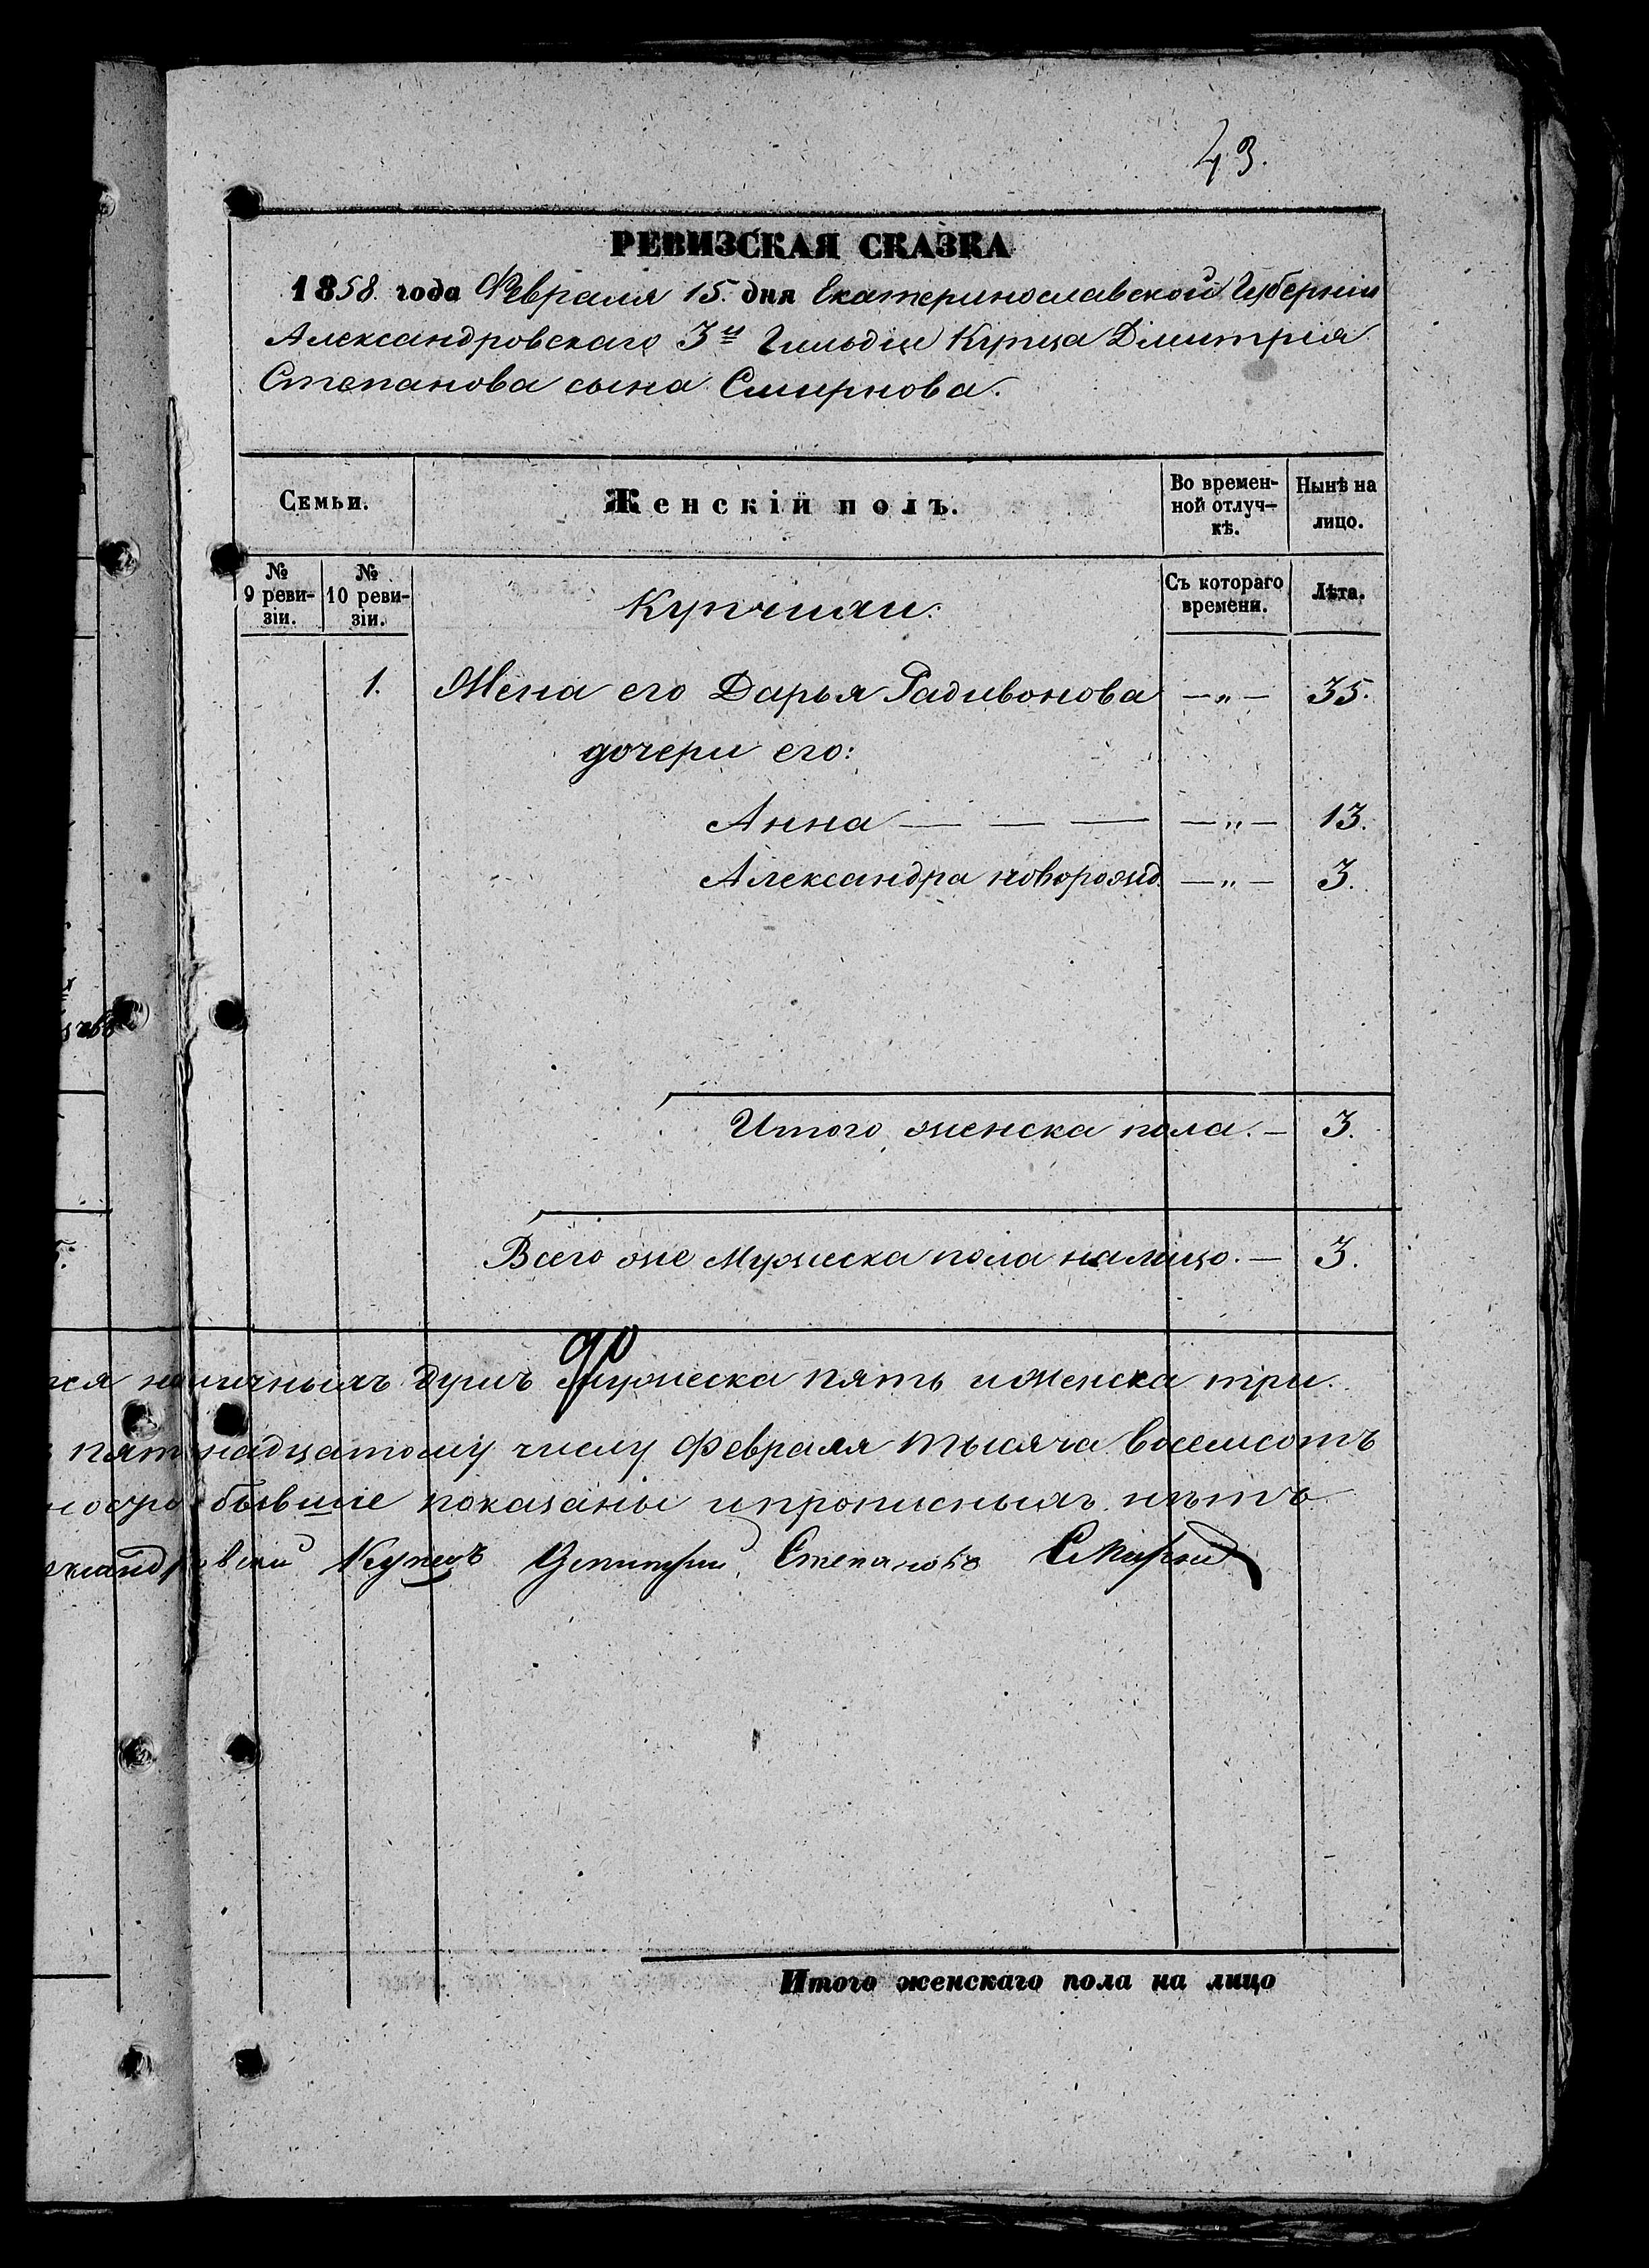 43.
РЕВИЗСКАЯ СКАЗКА
1858. года Февраля 15. дня Екатеринославской Губернии
Александровскаго 3й Гильдіи Купца Дмитрія
Степанова сына Смирнова.
Семьи.
Женскій полъ.
Во времен-
ной отлуч-
кѣ.
Нынѣ на
лицо.
№
9 реви-
зіи.
№
10 реви-
зіи.
Купчихи:
Съ котораго
времени.
Лѣта.
1. Жена его Дарья Радивонова —„— 35.
дочери его:
Анна — — — —„— 13.
Александра новорожд. —„— 3.
Итого женска пола. — 3.
Всего же Мужеска пола налицо. — 3.
наличныхъ душъ Мужеска пять и Женска три.
пятнадцатому числу Февраля тысяча восемсотъ
бывшіе показаны и прописныхъ нѣтъ
Купецъ Дмитрий Степановъ Смирнов
Итого женскаго пола на лицо